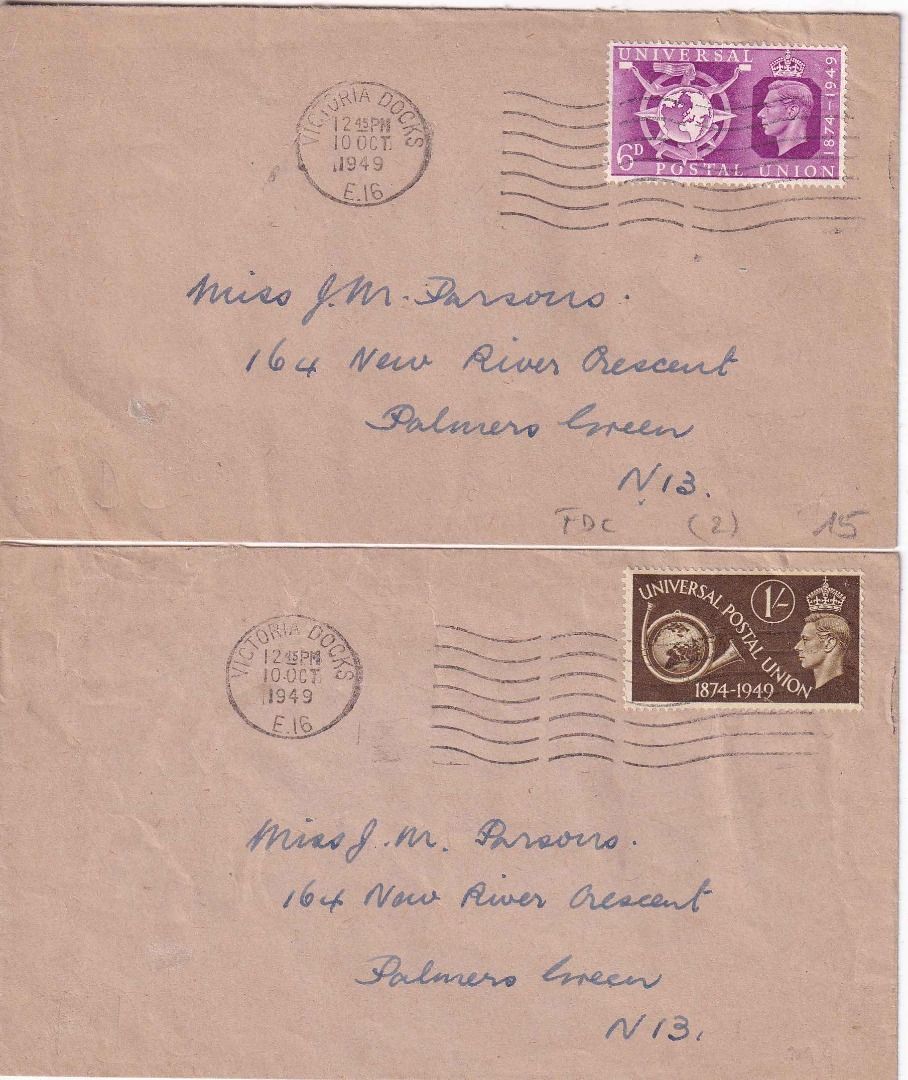 VICTORIA DOCKS
12 45 PM
10 OCT.
1949
E.16
UNIVERSAL
1874-1949
6D
POSTAL UNION
Miss J. M. Parsons.
164 New River Crescent
Palmers Green
N 13.
FDC (2) 15
VICTORIA DOCKS
12 45 PM
10 OCT.
1949
E.16
UNIVERSAL POSTAL UNION
1/-
1874-1949
Miss J. M. Parsons.
164 New River Crescent
Palmers Green
N 13.